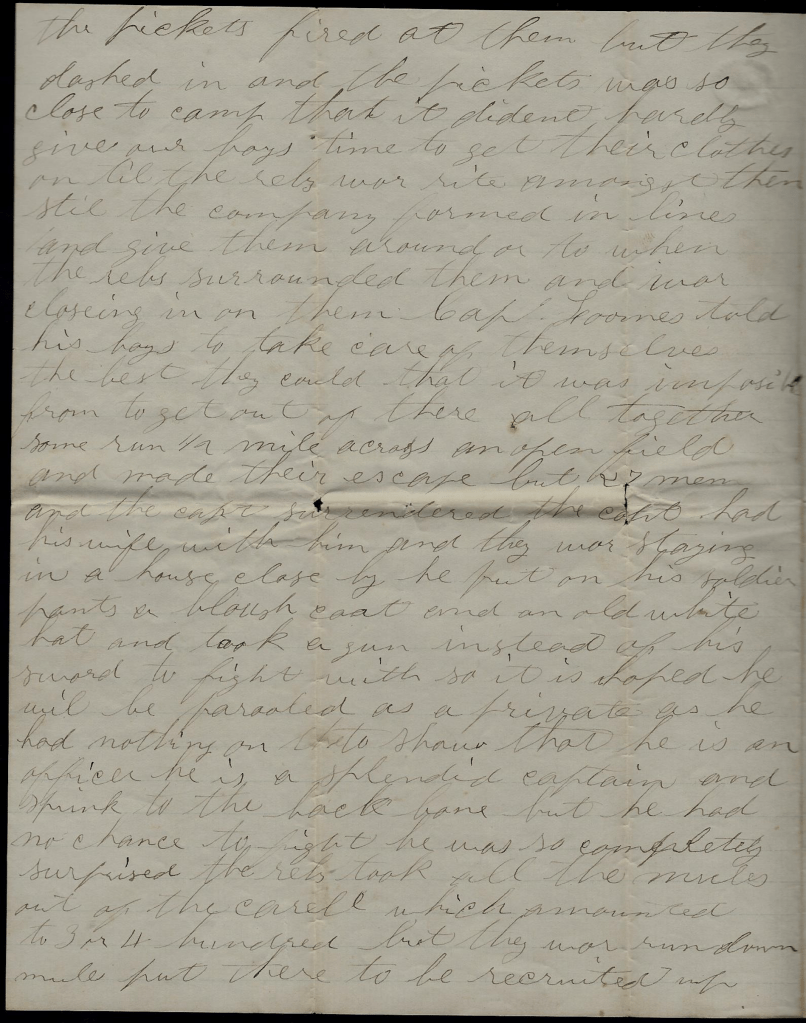 the pickets fired at them but they
dashed in and the pickets was so
close to camp that it dident hardly
give our boys time to get their clothes
on til the rebs war rite amongst them
stil the company formed in lines
and give them around or to when
the rebs surrounded them and war
closeing in on them Cap Loomes told
his boys to take care of themselves
the best they could that it was imposible
from to get out of there all together
some run 1/2 mile across an open field
and made their escape but 27 men
and the capt surrendered the capt had
his wife with him and they war staying
in a house close by he put on his soldier
pants a bloush coat and an old white
hat and took a gun instead of his
sword to fight with so it is hoped he
wil be parooled as a private as he
had nothing on to show that he is an
officer he is a splendid captain and
spunk to the back bone but he had
no chance to fight he was so completely
surprised the rebs took all the mules
out of the carell which amounted
to 3 or 4 hundred but they war run down
mule put there to be recruited up